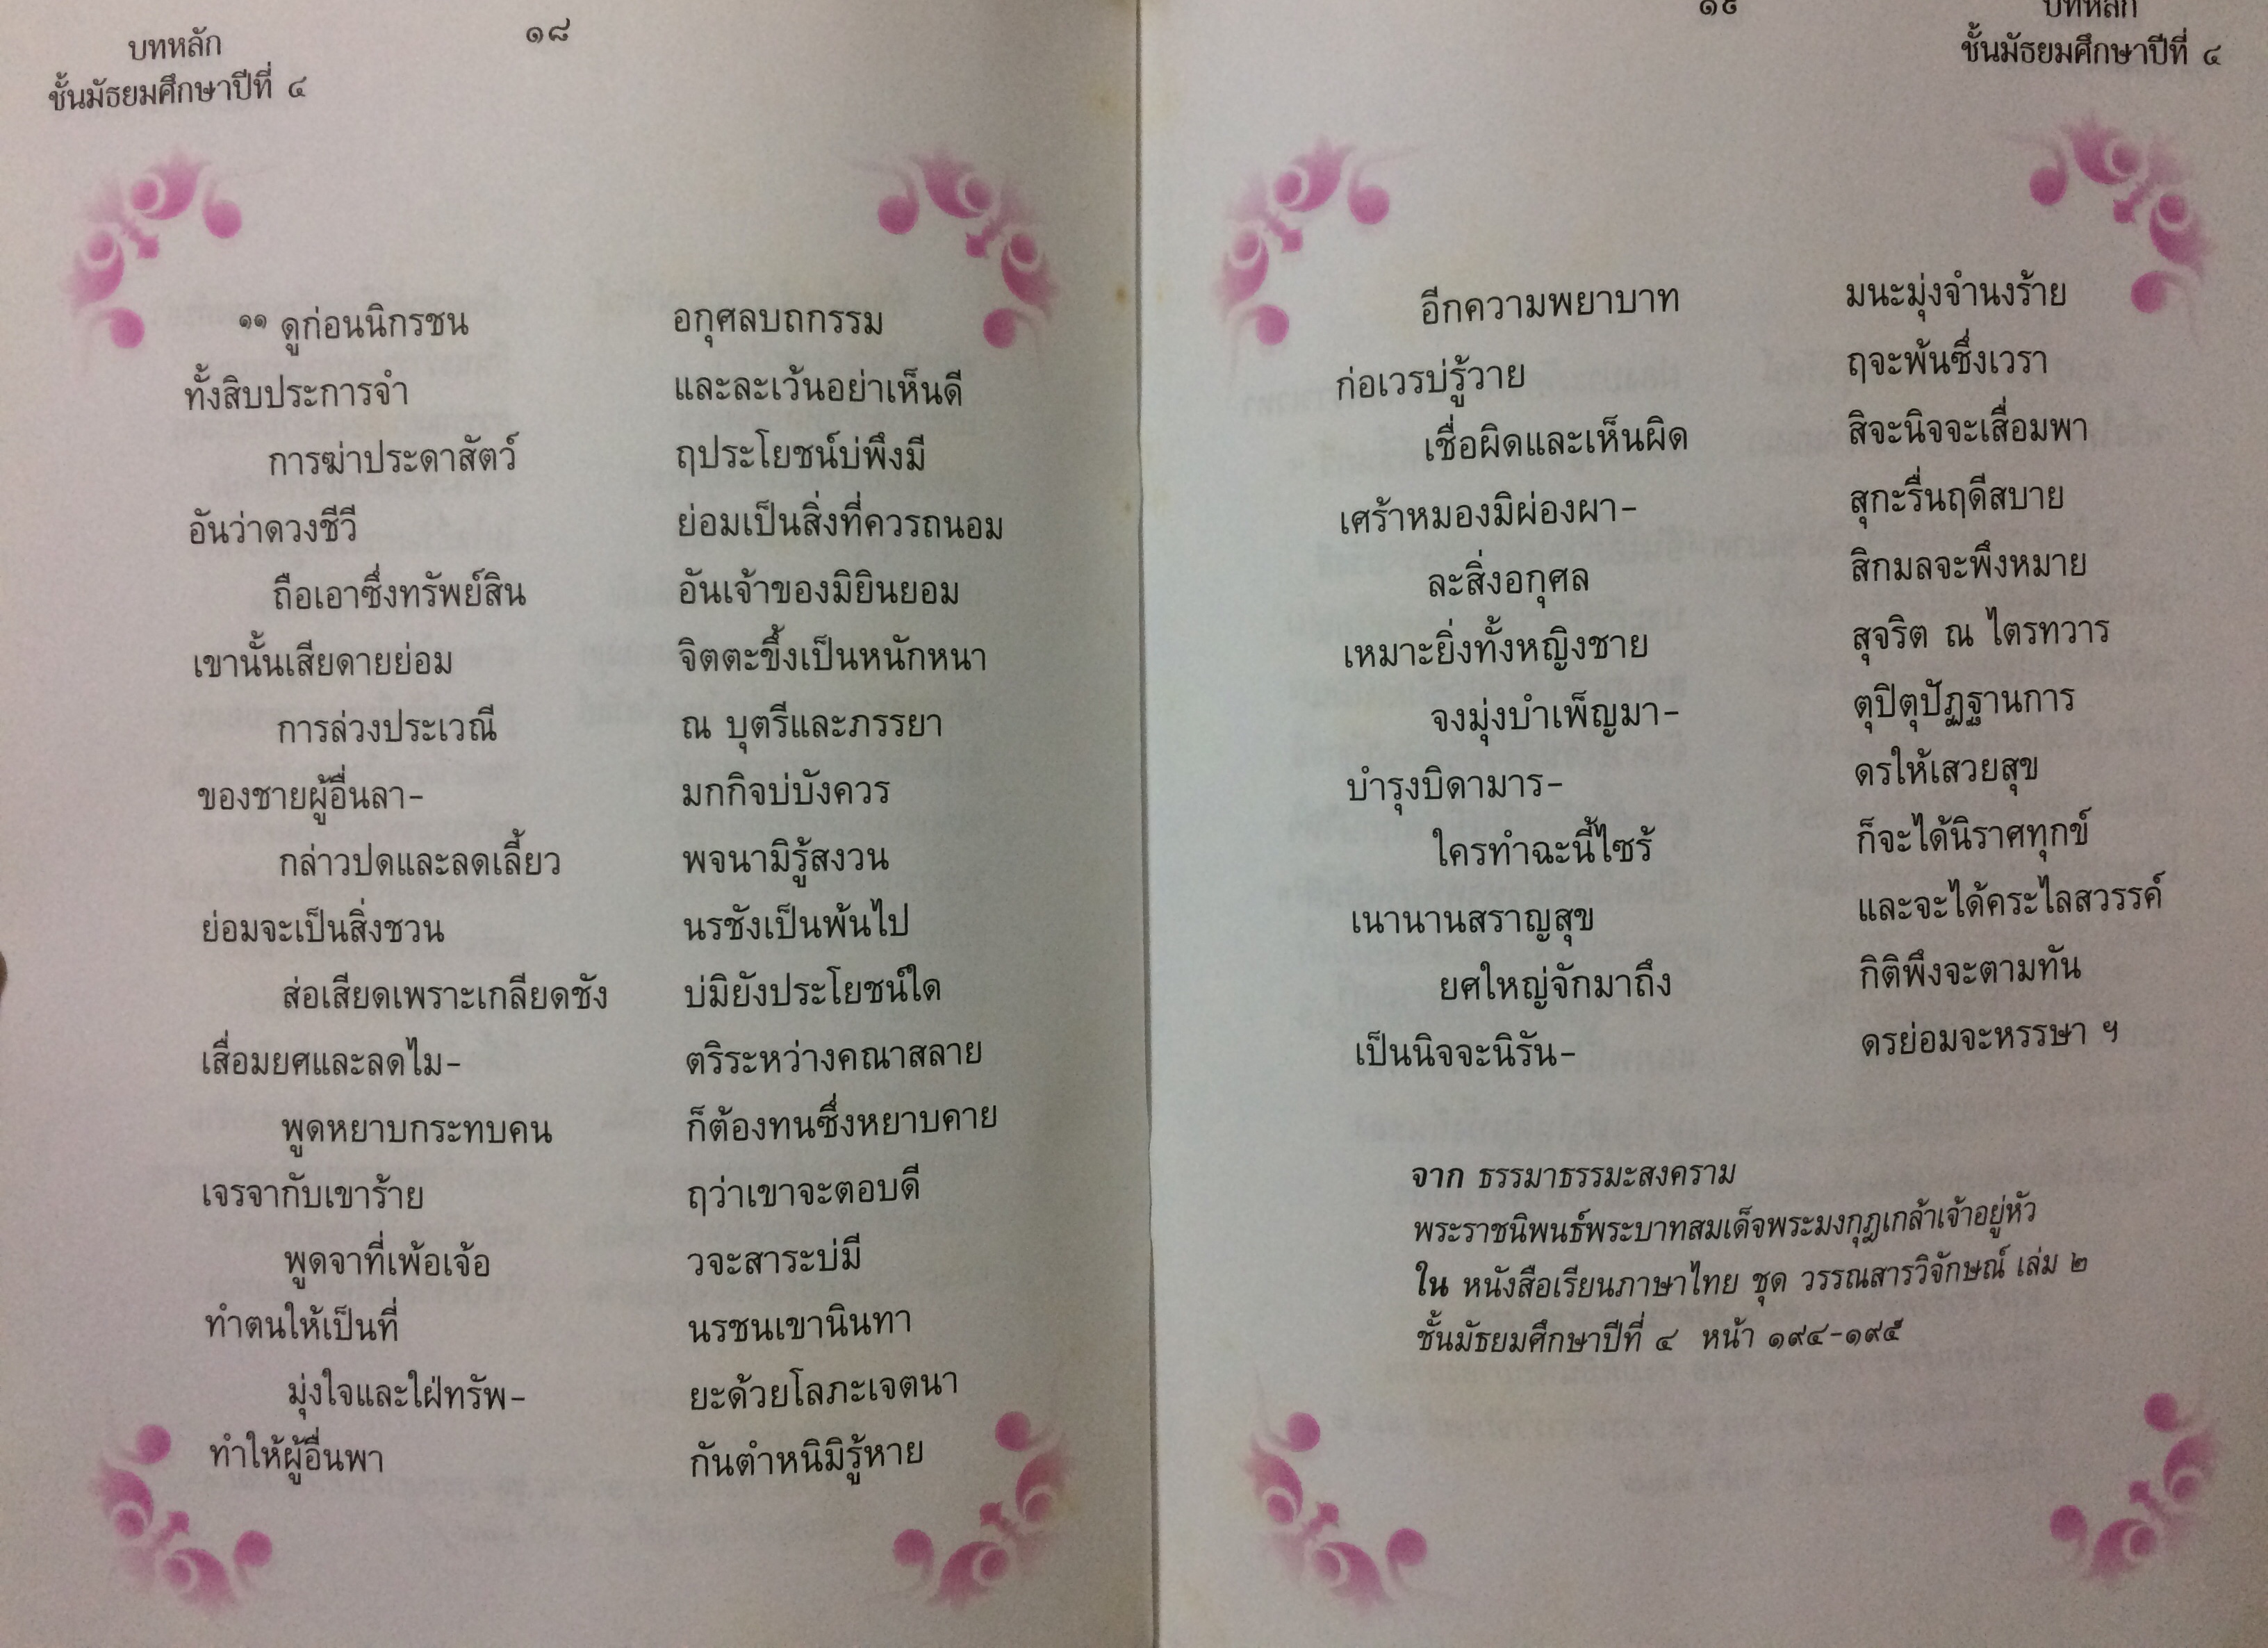 บทหลัก
ชั้นมัธยมศึกษาปีที่ ๔
๑๘
๑๑ ดูก่อนนิกรชน อกุศลบถกรรม
ทั้งสิบประการจำ และละเว้นอย่าเห็นดี
การฆ่าประดาสัตว์ ฤประโยชน์บ่พึงมี
อันว่าดวงชีวี ย่อมเป็นสิ่งที่ควรถนอม
ถือเอาซึ่งทรัพย์สิน อันเจ้าของมิยินยอม
เขานั้นเสียดายย่อม จิตตะขึ้งเป็นหนักหนา
การล่วงประเวณี ณ บุตรีและภรรยา
ของชายผู้อื่นลา- มกกิจบ่บังควร
กล่าวปดและลดเลี้ยว พจนามิรู้สงวน
ย่อมจะเป็นสิ่งชวน นรชังเป็นพ้นไป
ส่อเสียดเพราะเกลียดชัง บ่มิยังประโยชน์ใด
เสื่อมยศและลดไม- ตริระหว่างคณาสลาย
พูดหยาบกระทบคน ก็ต้องทนซึ่งหยาบคาย
เจรจากับเขาร้าย ฤว่าเขาจะตอบดี
พูดจาที่เพ้อเจ้อ วจะสาระบ่มี
ทำตนให้เป็นที่ นรชนเขานินทา
มุ่งใจและใฝ่ทรัพ- ยะด้วยโลภะเจตนา
ทำให้ผู้อื่นพา กันตำหนิมิรู้หาย
๑๙
บทหลัก
ชั้นมัธยมศึกษาปีที่ ๔
อีกความพยาบาท มนะมุ่งจำนงร้าย
ก่อเวรบ่รู้วาย ฤจะพ้นซึ่งเวรา
เชื่อผิดและเห็นผิด สิจะนิจจะเสื่อมพา
เศร้าหมองมิผ่องผา- สุกะรื่นฤดีสบาย
ละสิ่งอกุศล สิกมลจะพึงหมาย
เหมาะยิ่งทั้งหญิงชาย สุจริต ณ ไตรทวาร
จงมุ่งบำเพ็ญมา- ตุปิตุปัฏฐานการ
บำรุงบิดามาร- ดรให้เสวยสุข
ใครทำฉะนี้ไซร้ ก็จะได้นิราศทุกข์
เนานานสราญสุข และจะได้คระไลสวรรค์
ยศใหญ่จักมาถึง กิติพึงจะตามทัน
เป็นนิจจะนิรัน- ดรย่อมจะหรรษา ฯ
จาก ธรรมาธรรมะสงคราม
พระราชนิพนธ์พระบาทสมเด็จพระมงกุฎเกล้าเจ้าอยู่หัว
ใน หนังสือเรียนภาษาไทย ชุด วรรณสารวิจักษณ์ เล่ม ๒
ชั้นมัธยมศึกษาปีที่ ๔ หน้า ๑๙๔-๑๙๕